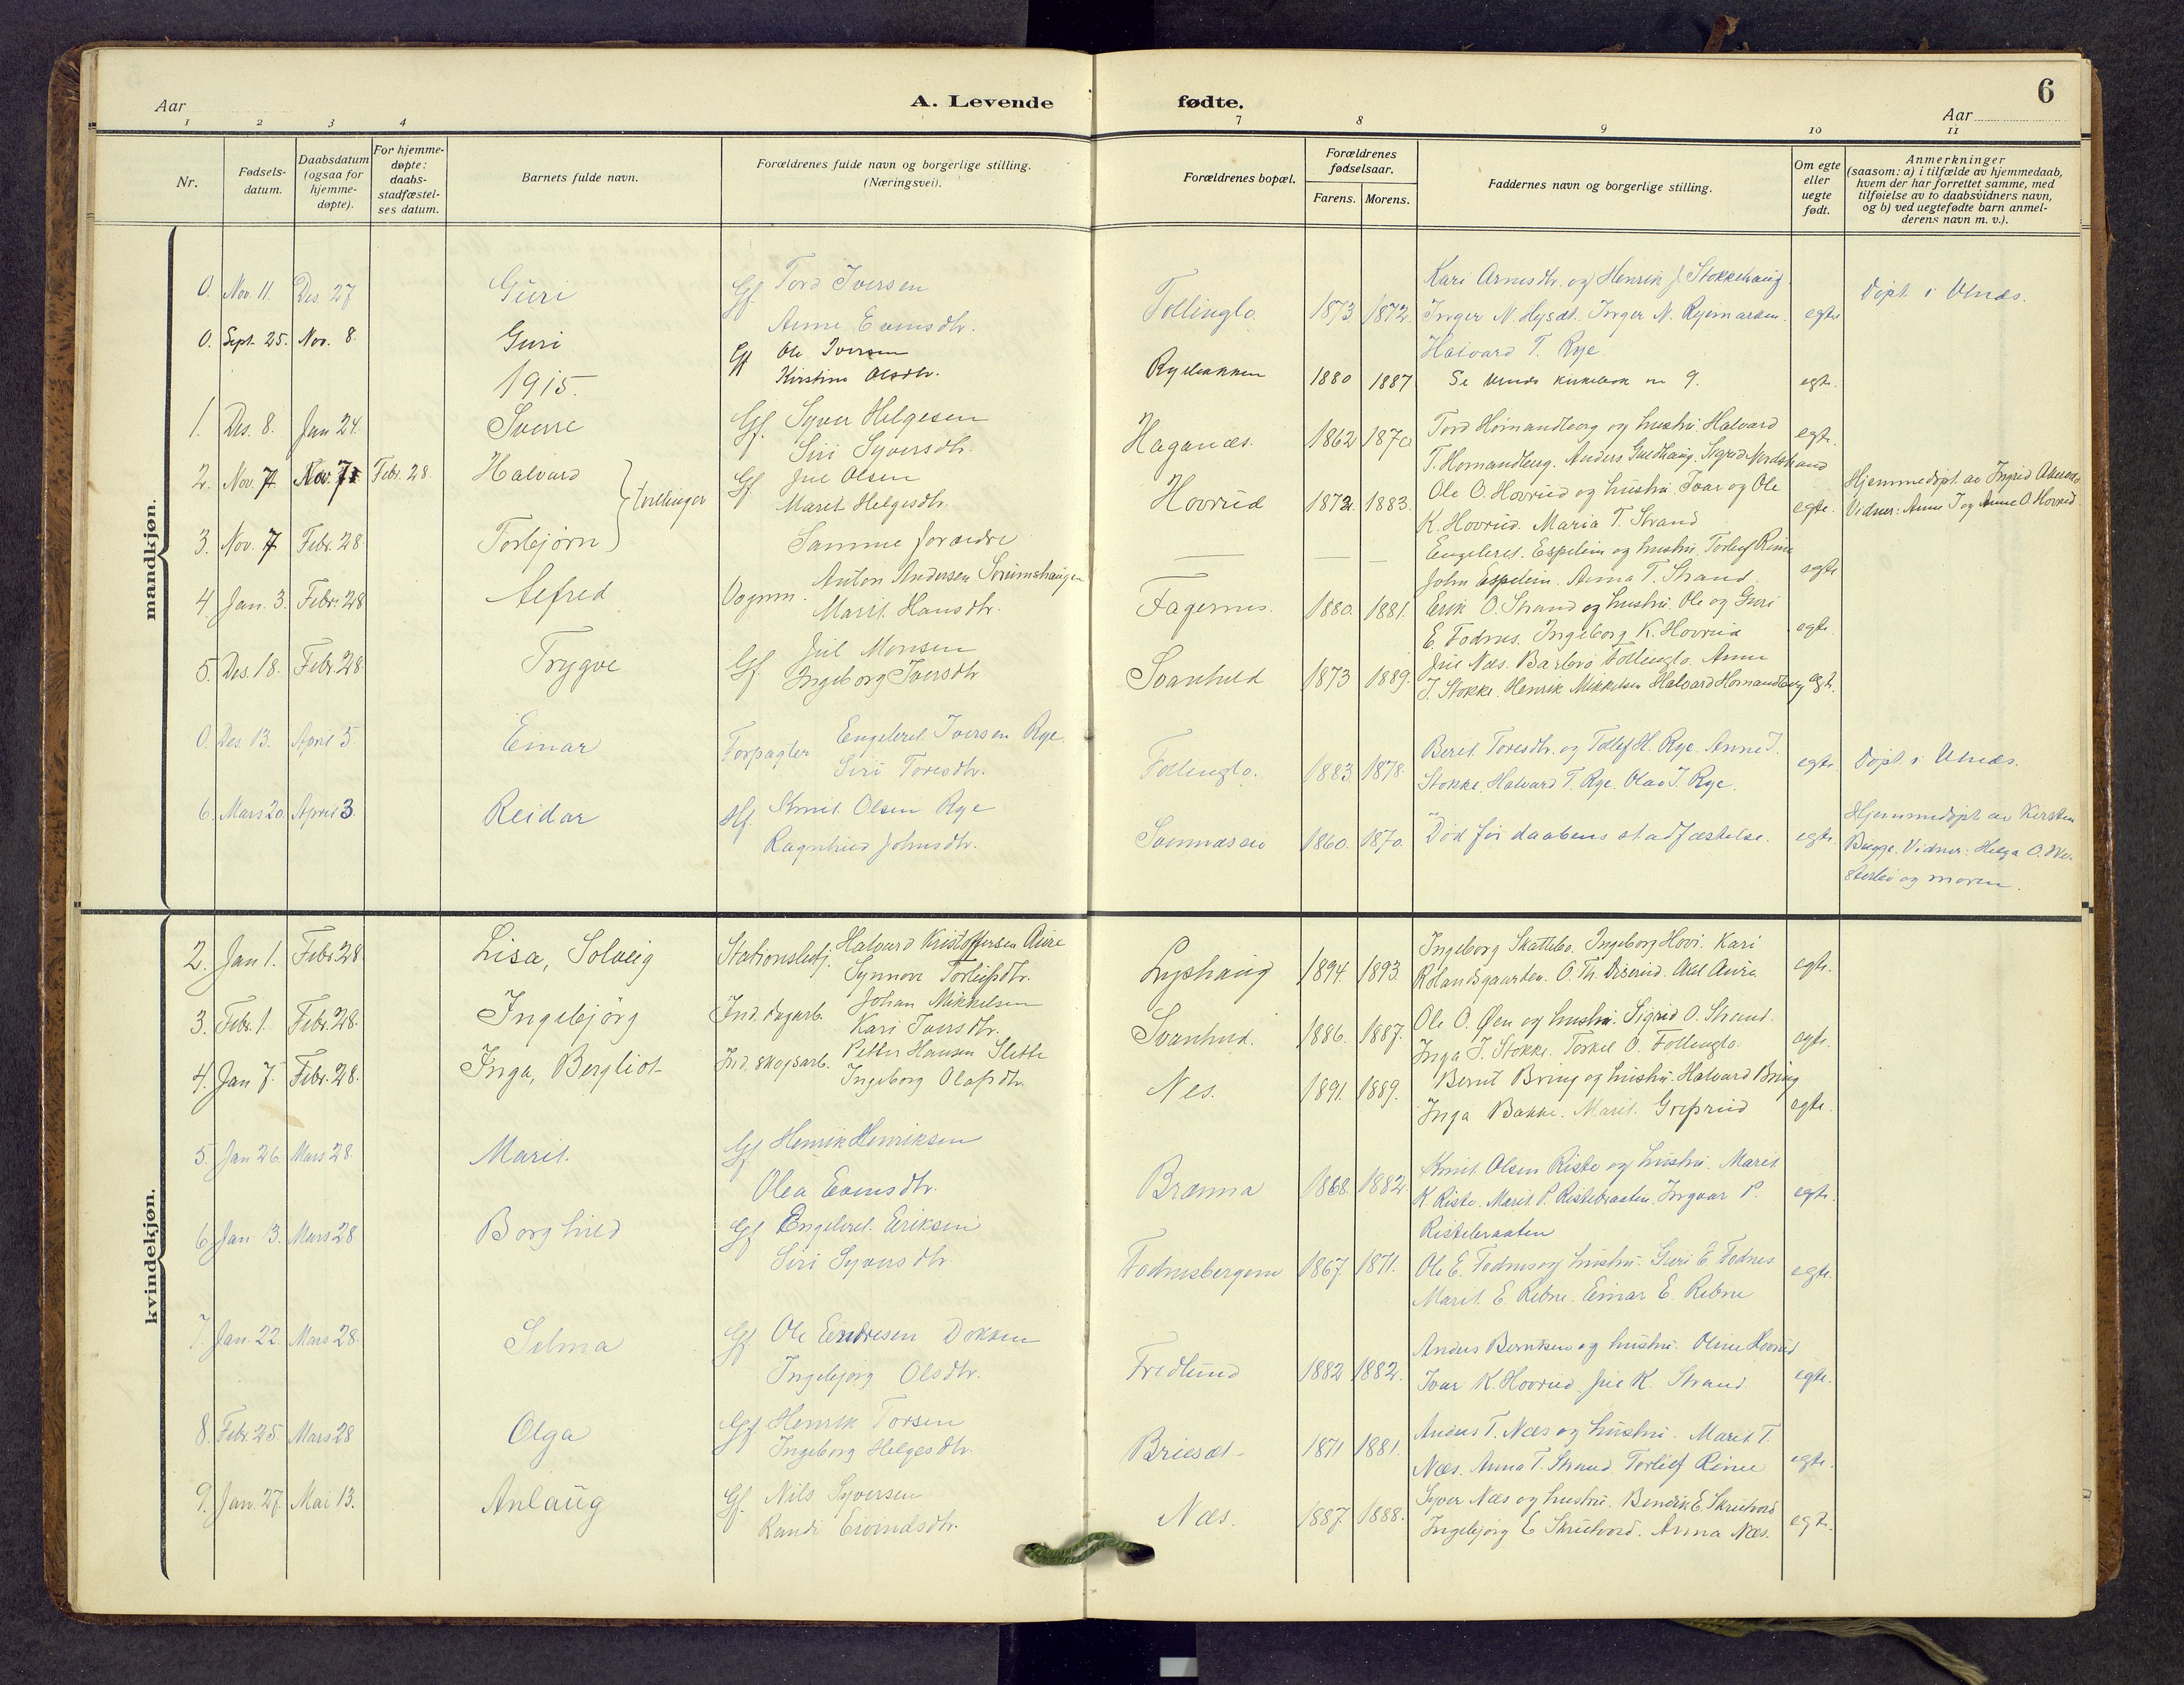 6
Aar
A. Levende
fødte.
Aar
1 2 3 4 7 8 9 10 11
Nr.
Fødsels-
datum.
Daabsdatum
(ogsaa for
hjemme-
døpte).
For hjemme-
døpte:
daabs-
stadfæstel-
ses datum.
Barnets fulde navn.
Forældrenes fulde navn og borgerlige stilling.
(Næringsvei).
Forældrenes bopæl.
Forældrenes
fødselsaar.
Farens. Morens.
Faddernes navn og borgerlige stilling.
Om egte
eller
uegte
født.
Anmerkninger
(saasom: a) i tilfælde av hjemmedaab,
hvem der har forrettet samme, med
tilføielse av to daabsvidners navn,
og b) ved uegtefødte barn anmel-
derens navn m. v.).
mandkjøn.
0. Nov. 11. Des. 27 Guri Gf. Tord Iversen
Anne Evensdtr.
Follinglo. 1873 1872.
Kari Arnesdtr. og Henrik J. Stokkehaug.
Inger N. Hysæt. Inger N. Ryemarken.
Halvard T. Rye.
egte Døpt i Ulnæs.
0. Sept. 25. Nov. 8. Guri Gf Ole Iversen
Kirstine Olsdtr.
Ryebakken 1880 1887 Se Ulnæs kirkebok nr 9. egte.
1915.
1. Des. 8. Jan 24. Sverre Gf. Syver Helgesen
Siri Syversdtr.
Haganæs. 1862 1870
Tord Hornandberg og hustru. Halvard
T. Hornandberg. Anders Guldhaug. Sigrid Nordstrand
egte.
2. Nov. 7. Nov. 7 Febr. 28. Halvard tvillinger Gf Jul Olsen
Marit Helgesdtr.
Hovrud 1872. 1883.
Ole O. Hovrud og hustru. Ivar og Ole
K. Hovrud. Maria T. Strand
egte.
Hjemmedøpt av Ingrid
Vidner: Anne I og Anne O. Hovrud
3. Nov. 7 Febr. 28 Torbjørn Samme forældre
Engebret. Espelien og hustru. Torleif Rime
John Espelien. Anna T. Strand.
egte
4. Jan. 3. Febr. 28 Alfred Vognm. Anton Andersen Sørumshaugen
Marit Hansdtr.
Fagernes. 1880. 1881.
Erik O. Strand og hustru. Ole og Guri
E. Fodnes. Ingeborg K. Hovrud
egte.
5. Des. 18. Febr. 28 Trygve Gf. Jul Monsen
Ingeborg Iversdtr
Svanhild 1873 1889.
Jul Næs. Barbro Follinglo. Anne
J. Stokke. Henrik Mikkelsen Halvard Hornandberg
egte.
0. Des. 13. April 5. Einar Forpagter Engebret Iversen Rye.
Siri Toresdtr.
Follinglo. 1883. 1878.
Berit Toresdtr. og Tollef H. Rye. Anne J.
Stokke. Halvard T. Rye. Olav I. Rye.
egte. Døpt i Ulnæs.
6. Mars 20. April 3. Reidar Gf. Knut Olsen Rye
Ragnhild Johnsdtr.
1860. 1870.
Død før daabens stadfæstelse. egte.
Hjemmedøpt av Kirsten
Bugge. Vidner: Helga O.
og moren.
kvindekjøn.
2. Jan 1. Febr. 28. Lisa, Solveig Stationsbetj. Halvard Kristoffersen Aure
Synnøve Torleifsdtr.
Lyshaug 1894. 1893.
Ingeborg Skattebo. Ingeborg Hovi. Kari
Rolandsgaarden. O. Th. Diserud. Aksel Aure
egte.
3. Febr. 1. Febr. 28. Ingebjørg Ind. dagarb. Johan Mikkelsen
Kari Iversdtr.
Svanhild. 1886. 1887.
Ole O. Øen og hustru. Sigrid O. Strand.
Inga J. Stokke. Torkel O. Follinglo.
egte.
4. Jan 7. Febr. 28. Inga, Bergliot Ind. skogsarb. Petter Hansen Slette
Ingeborg Olafsdtr.
Nes. 1891. 1889.
Bernt Bring og hustru. Halvard Bring
Inga Bakke. Marit
egte.
5. Jan 26. Mars 28. Marit. Gf Henrik Henriksen
Olea Evensdtr.
Brænna 1868. 1882.
Knut Olsen Riste og hustru. Marit
K. Riste. Marit P. Ristebraaten. Ingvar P.
Ristebraaten
egte.
6. Jan 13. Mars 28 Borghild Gf Engebret Eriksen
Siri Syversdtr.
Fodnesbergene 1867. 1871.
Ole E. Fodnes og hustru. Guri E. Fodnes
Marit E. Rebne. Einar E. Rebne
egte.
7. Jan. 22. Mars 28. Selma Gf. Ole Endresen Dokken
Ingebjørg Olsdtr.
Fredlund 1882 1882.
Anders Berntsen og hustru. Oline Hovrud
Ivar K. Hovrud. Jul K. Strand.
egte.
8. Febr. 25. Mars 28 Olga Gf Henrik Torsen
Ingeborg Helgesdtr.
1871 1881.
Anders T. Næs og hustru. Marit T.
Næs. Anna T. Strand. Torleif Rime
egte.
9. Jan. 27. Mai 13. Anlaug Gf. Nils Syversen
Randi Eivindsdtr.
Næs. 1887. 1888.
Syver Næs og hustru. Bendik E. Skrutvold
Ingebjørg E Skrutvold. Anna Næs.
egte.